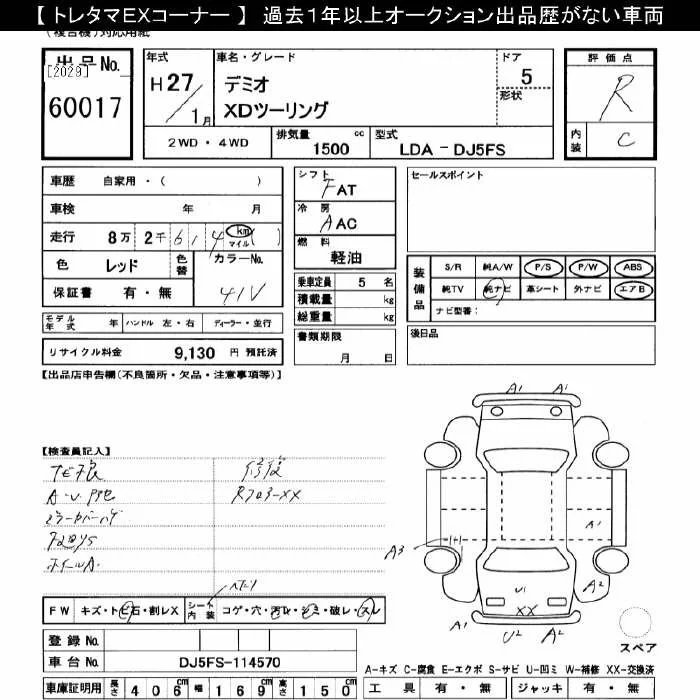 【 トレタマEXコーナー 】 過去1年以上オークション出品歴がない車両
(複合機)対応用紙
出品No.
[2029]
60017
年式
H27/1月
車名・グレード
デミオ
XDツーリング
ドア
5
形状
評価点
R
内装
C
2WD ・ 4WD
排気量
1500 cc
型式
LDA - DJ5FS
車歴 自家用・( )
車検 年 月
走行 8万 2千 6 1 4 km マイル ( )
色 レッド
色替
カラーNo.
41V
保証書 有・無
モデル年式 年
ハンドル 左・右
ディーラー・並行
リサイクル料金 9,130 円 預託済
シフト
FAT
冷房
AAC
燃料
軽油
乗車定員 5 名
積載量 kg
総重量 kg
書類期限
月 日
セールスポイント
装備品
S/R 純A/W P/S P/W ABS
純TV 純ナビ 革シート 外ナビ エアB
ナビ型番:
後日品
【出品店申告欄(不良箇所・欠品・注意事項等)】
【検査員記入】
修復
A1 A1
A1
A3
A2
U1
XX
A1
U2 A2
スペア
FW キズ・トビ石・割レX
シート内装 コゲ・穴・汚レ・シミ・破レ・スレ
登録No.
車台No. DJ5FS-114570
車庫証明用 長さ 406cm 幅 169cm 高さ 150cm
A-キズ C-腐食 E-エクボ S-サビ U-凹ミ W-補修 XX-交換済
工具 有・無 ジャッキ 有・無